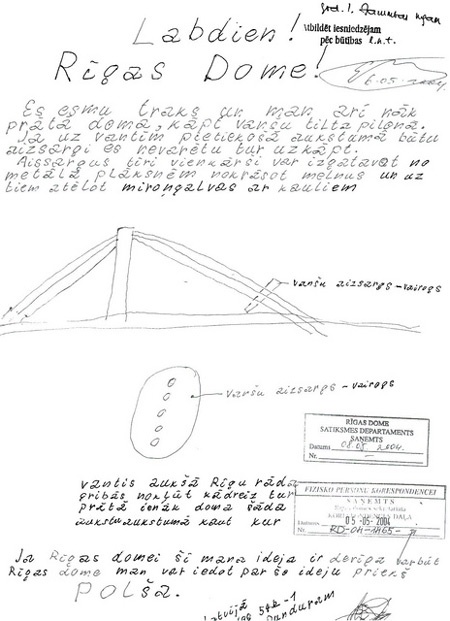 Labdien!
Rīgas Dome!
Atbildēt iesniedzējam
pēc būtības
6.05.2004.
Es esmu traks un man arī nāk
prātā doma, kāpt vanšu tilta pilonā.
Ja uz vantīm pietiekošā aukstumā būtu
aizsargi es nevarētu tur uzkāpt.
Aissargus tīri vienkārši var izgatavot no
metālā plāksnēm nokrāsot melnus un uz
tiem atēlot mirongalvas ar kauliem
vanšu aizsargs - vairogs
vanšu aizsargs - vairogs
RĪGAS DOME
SATIKSMES DEPARTAMENTS
SAŅEMTS
Datums 2004.
Nr.
vantis aukšā Rīgu rāda
gribās nokļūt kādreiz tur
prātā ienāk doma šāda
aukstumā kaut kur
FIZISKO PERSONU KORESPONDENCEI
SAŅEMTS
Datums 05-05-2004
Nr. RD-OH-1465-
Ja Rīgas domei šī mana ideja ir derīga varbūt
Rīgas dome man var iedot par šo ideju priekš
POLŠA.
Latvijā